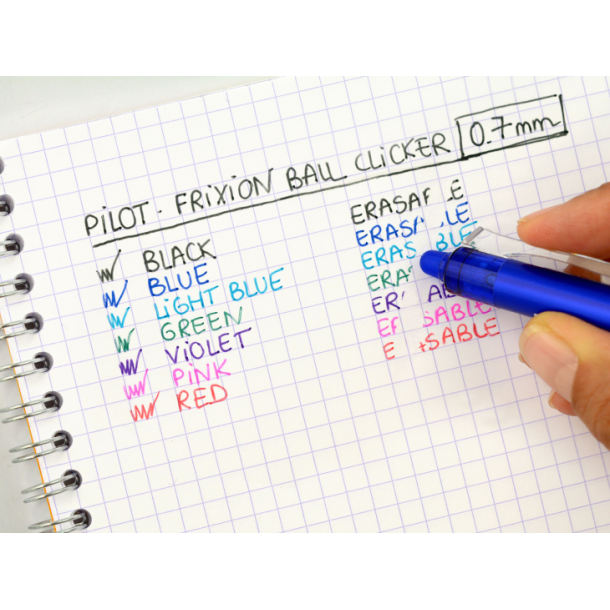 PILOT - FRIXION BALL CLICKER 0.7mm
BLACK
BLUE
LIGHT BLUE
GREEN
VIOLET
PINK
RED
ERASA E
ERAS LE
ERAS BLE
ERA
ER ABL
E SABLE
E SABLE